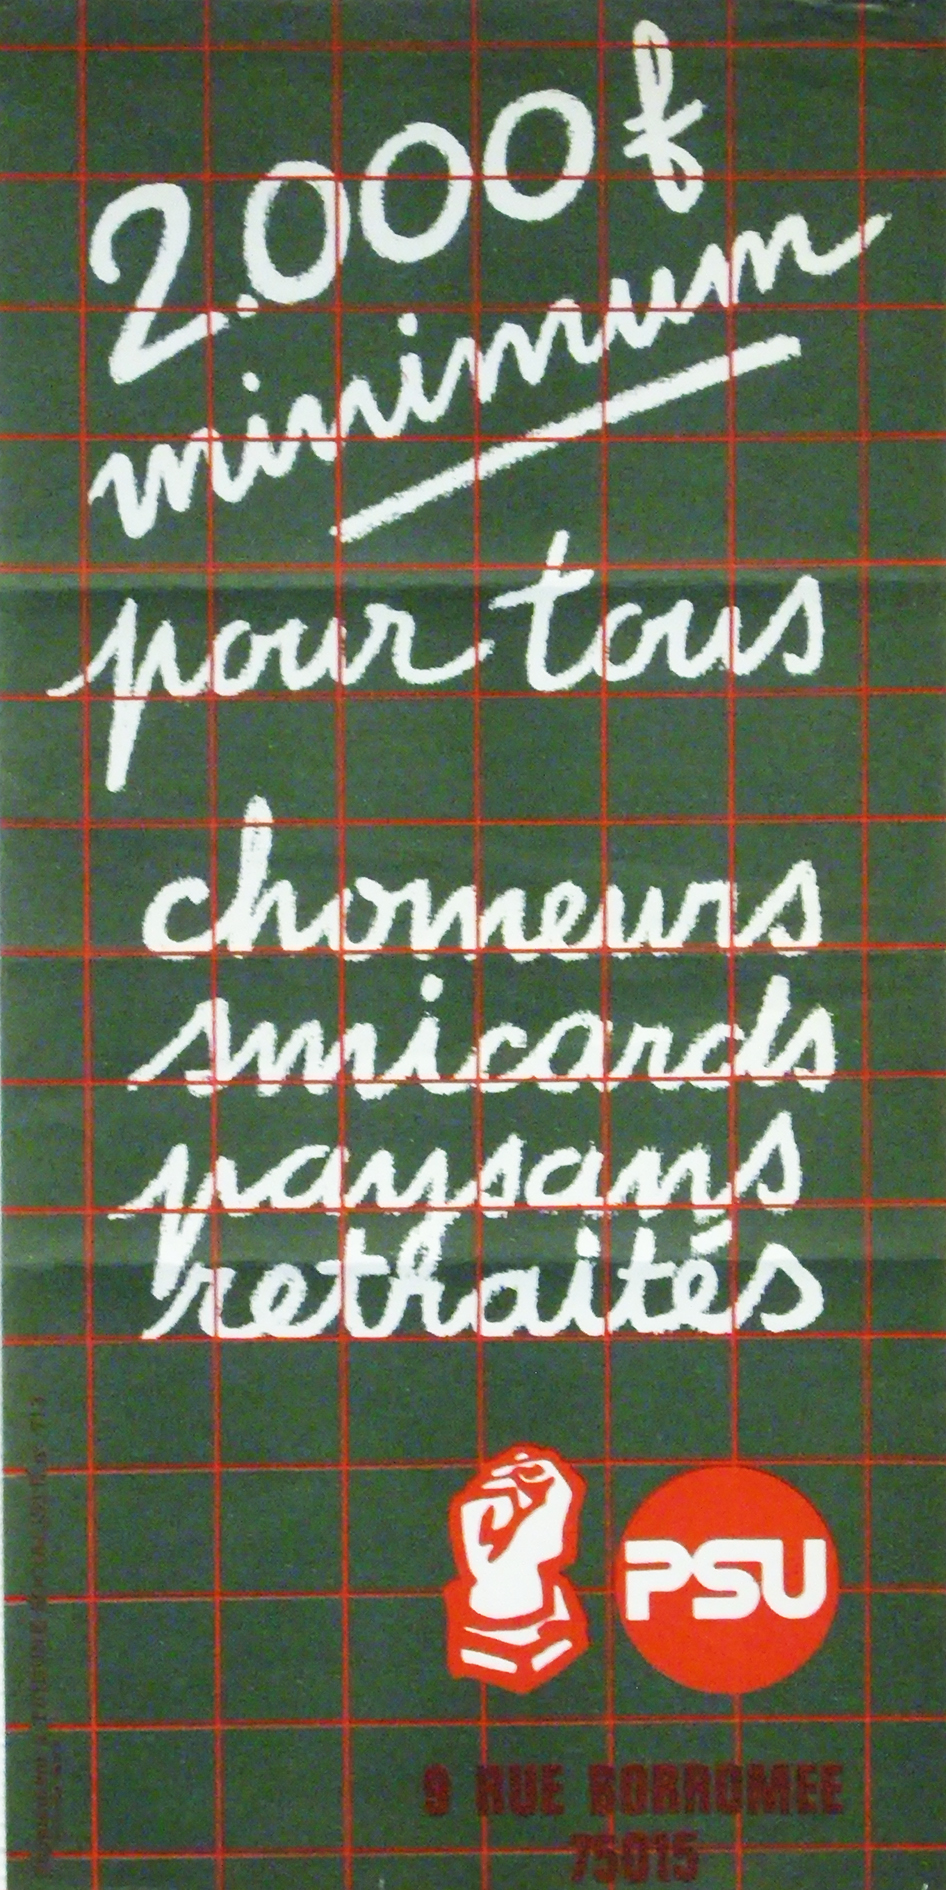 2.000f
minimum
pour tous
chomeurs
smicards
paysans
retraités
PSU
9 RUE BORROMEE
75015